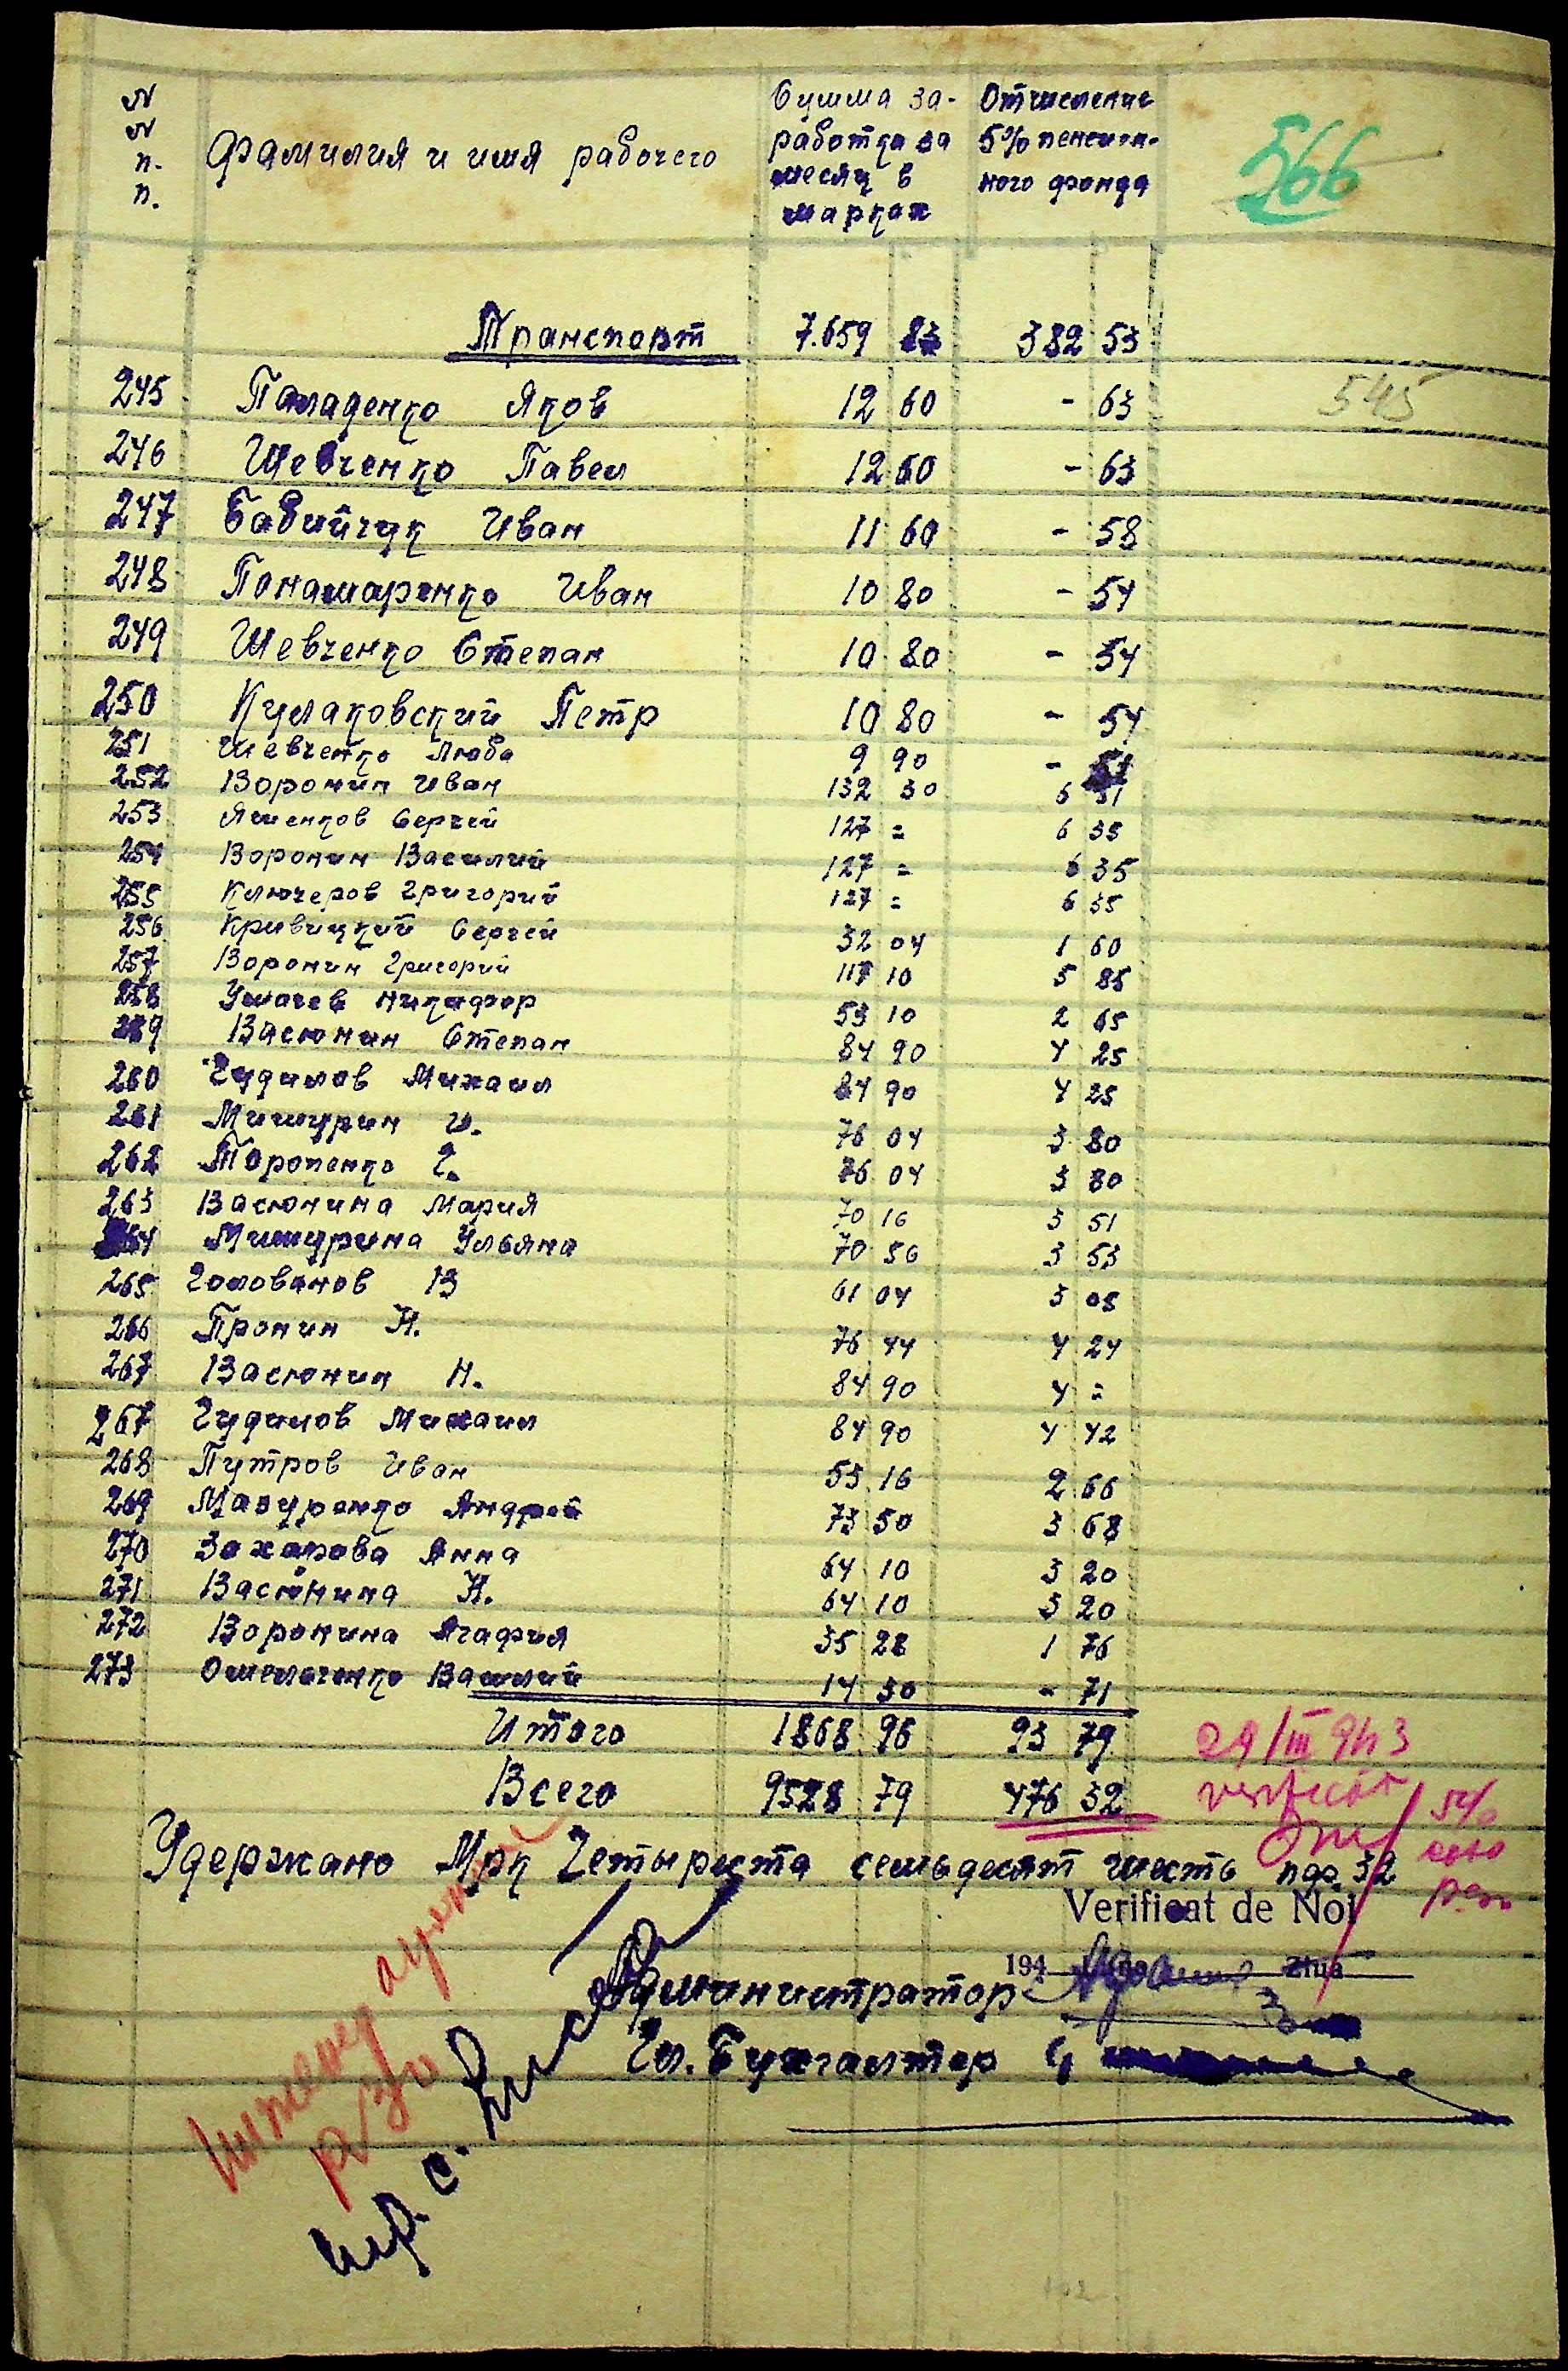 № № п. п. Фамилия и имя рабочего Сумма заработка за месяц в марках Отчисление 5% пенсионного фонда
566
Транспорт 7.659 83 382 53
245 Паладенко Яков 12 60 - 63
545
246 Шевченко Павел 12 60 - 63
247 Бабийчук Иван 11 60 - 58
248 Понамаренко Иван 10 80 - 54
249 Шевченко Степан 10 80 - 54
250 Кулаковский Петр 10 80 - 54
251 Шевченко Люба 9 90 -
252 Воронин Иван 132 30 6 51
253 Яшенков Сергей 127 = 6 35
254 Воронин Василий 127 = 6 35
255 Ключеров Григорий 127 = 6 35
256 Кривицкий Сергей 32 04 1 60
257 Воронин Григорий 117 10 5 85
258 Никифор 53 10 2 65
259 Васюнин Степан 84 90 4 25
260 Гудилов Михаил 84 90 4 25
261 Мишурин И. 76 04 3 80
262 Торопенко Г. 76 04 3 80
263 Васюнина Мария 70 16 3 51
264 Мишурина Ульяна 70 56 3 53
265 Голованов В 61 04 3 05
266 Пронин Н. 76 44 4 24
267 Васюнин Н. 84 90 4 =
267 Гудилов Михаил 84 90 4 42
268 Путров Иван 53 16 2 66
269 Мазуренко Андрей 73 50 3 68
270 Захарова Анна 64 10 3 20
271 Васюнина Н. 64 10 3 20
272 Воронина Агафия 35 28 1 76
273 Омельченко Василий 14 30 - 71
Итого 1868 96 93 79
29/III 943
Всего 9528 79 476 32
verificat
Удержано Мрк Четыреста семьдесят шесть пф. 32
Verificat de Noi
194 Ziua
Администратор
Гл. Бухгалтер